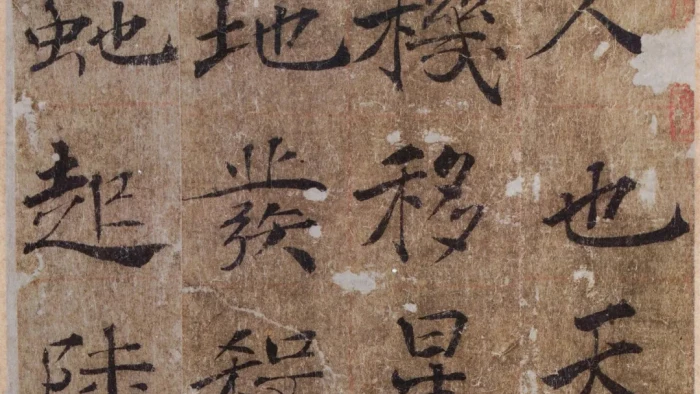 人也天
機移星
地發殺
虵起陸